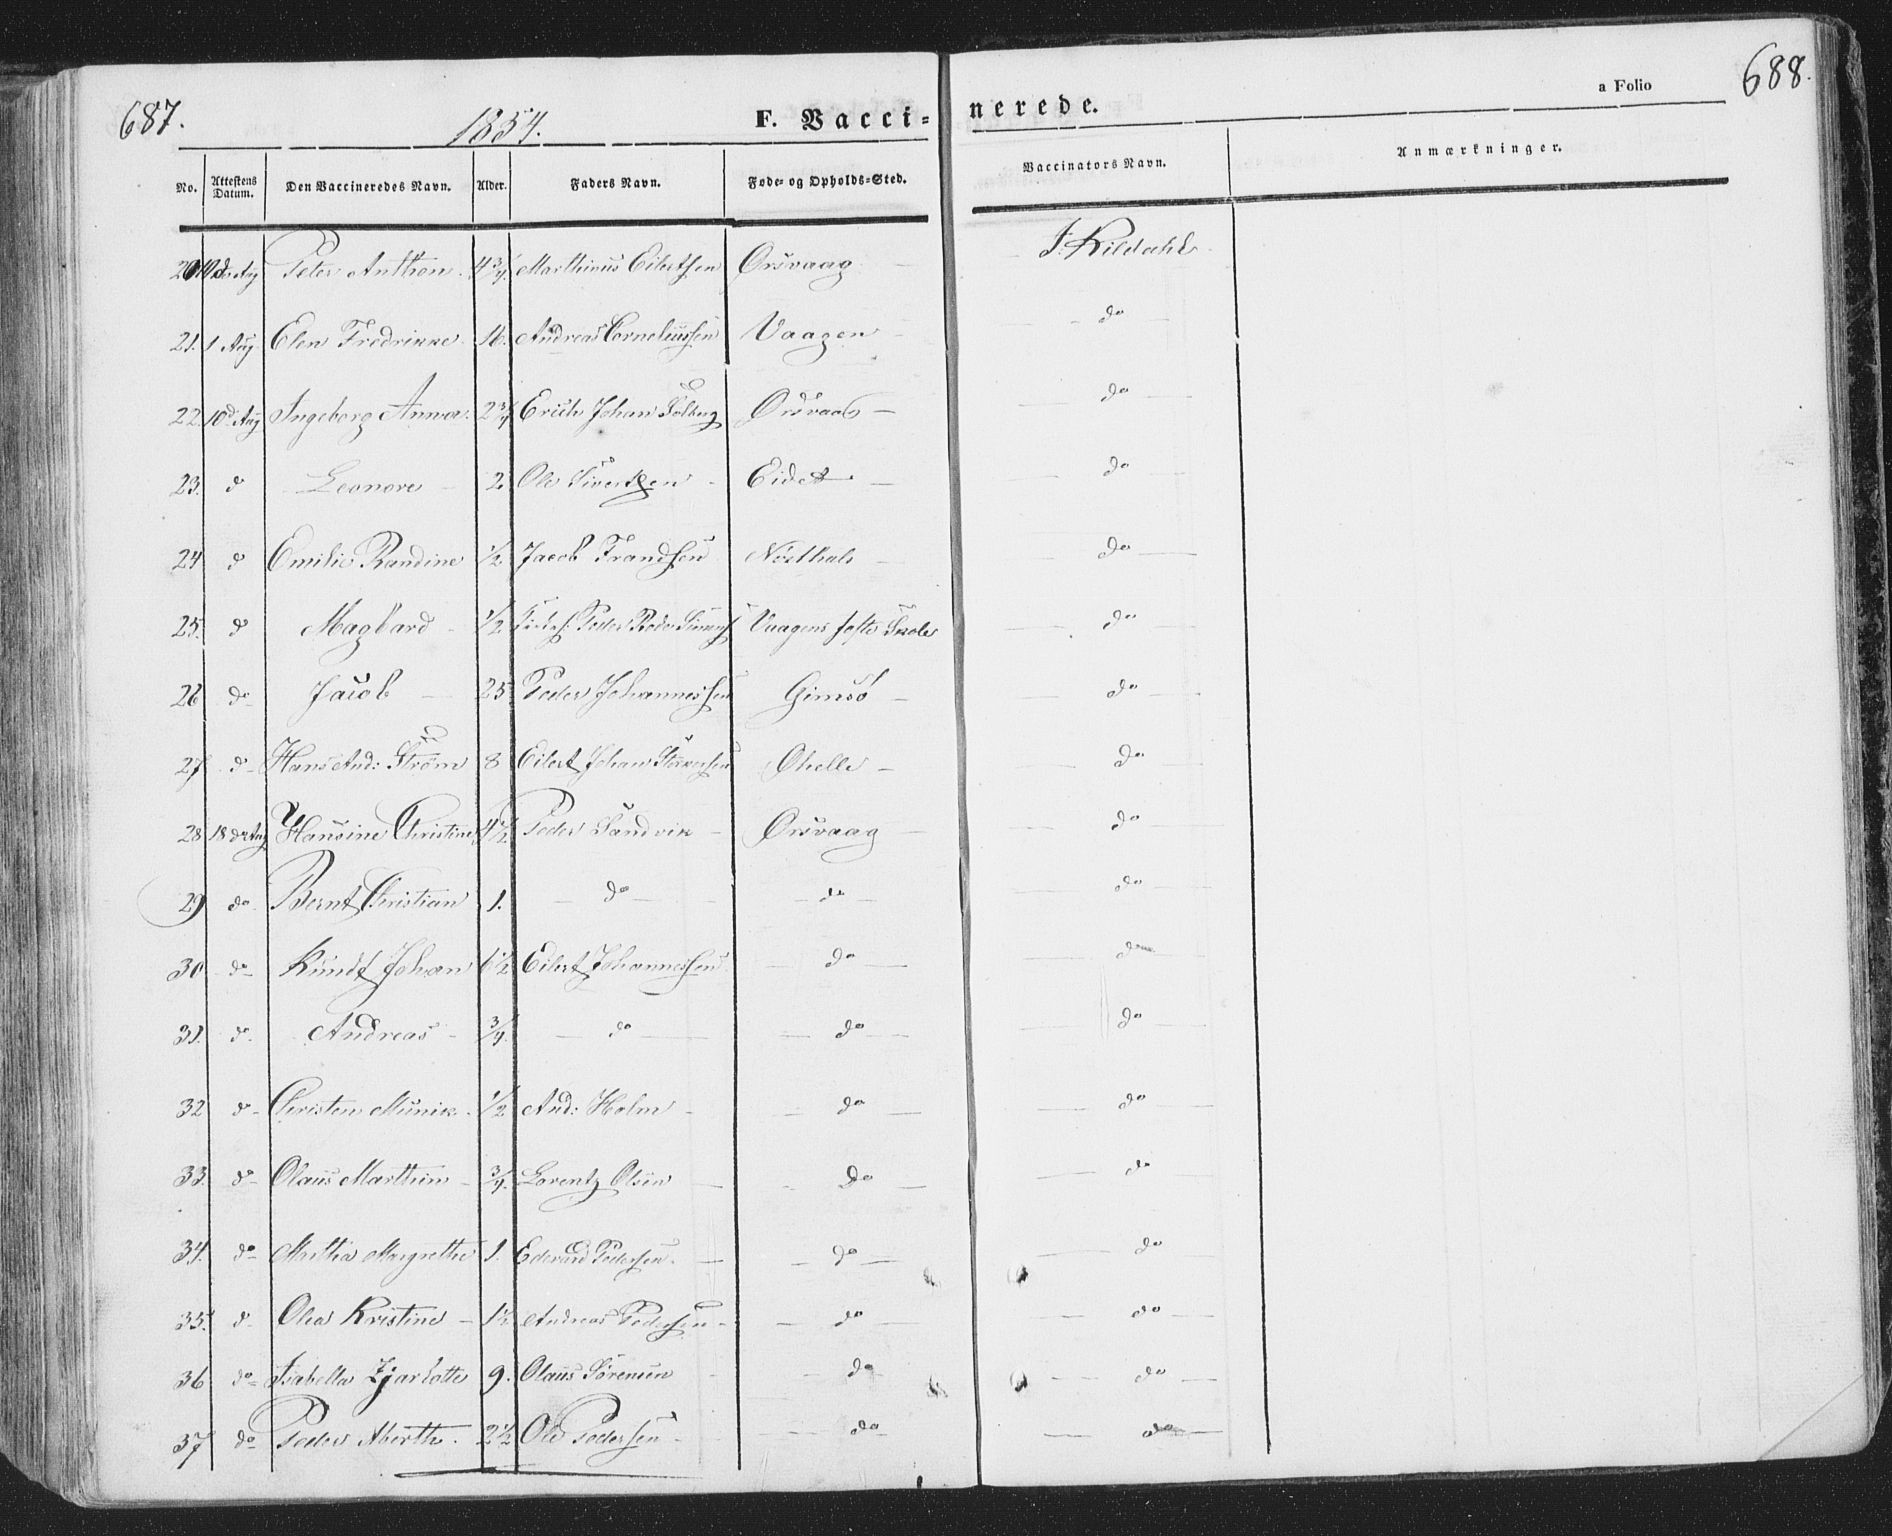 687.
1854.
F. Vacci-
nerede.
a Folio
688.
No. Attestens Datum. Den Vaccineredes Navn. Alder. Faders Navn. Føde- og Opholds-Sted. Vaccinators Navn. Anmærkninger.
20 10de Aug Peter Anthon. 4 3/4 Marthinus Eilertsen Orsvaag — J. Kildahl
21. 1 Aug Elen Fredrikke. 16. Andreas Corneliussen Vaagen — do
22. 10de Aug Ingeborg Anna. 2 3/4 Erich Johan Orsvaag — do
23. d Leonore — 2. Ole Sivertsen — Eidet — do
24 d Emilie Randine 1/2 Jacob Frandsen — do
25. d Magbard — 1/2 Peder Vaagens faste Skole do
26 do Jacob — 25. Peder Johannessen Gimsö — do
27 d Hans And: Ström 8 Eilert Johan Ohelle — do
28 18de Aug Hansine Christine 4 1/2 Peder Sandvik — Orsvaag — do
29 do Bernt Christian 1. — do — — do — do
30 do Kundt Johan 6 1/2 Eilert Johannessen — do — do
31. d. Andreas — 3/4. — do — — do — do
32 d Christen Munik. 1/2 And: Holm — — do — do
33. do Olaus Marthin — 3/4. Lorentz Olsen — — do — do
34. do Mittia Margrethe 1. Edevard Pedersen. — — do — do
35. d Olea Kristine — 1 1/2 Andreas Pedersen — — do — do
36 do Isabella Zjarlotte 9. Olaus Sörensen — do — do
37 do Peder Aberth. 2 1/2 Ole Pedersen — — do — do